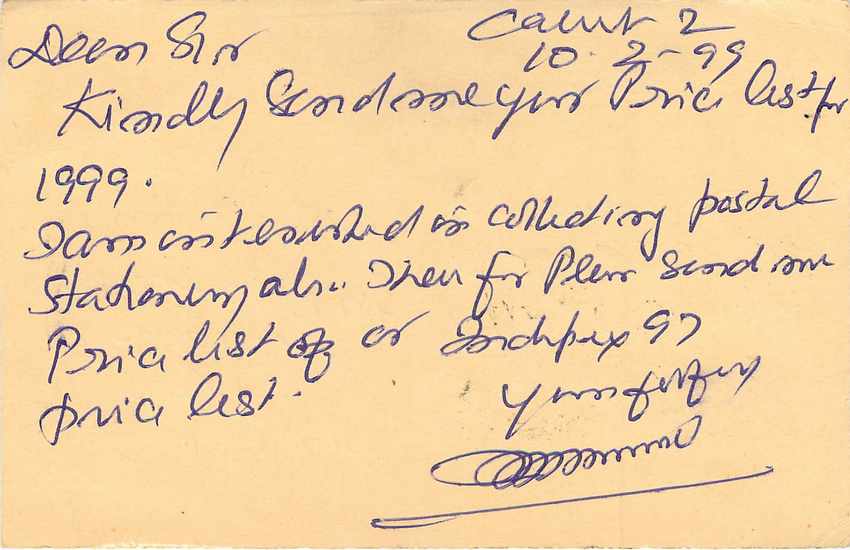 Calicut 2
10-2-99
Dear Sir
Kindly Send me your Price list for
1999.
I am interested in collecting postal
Stationery also. Therefor Please send me
Price list of or Indepex 97
price list.
Yours